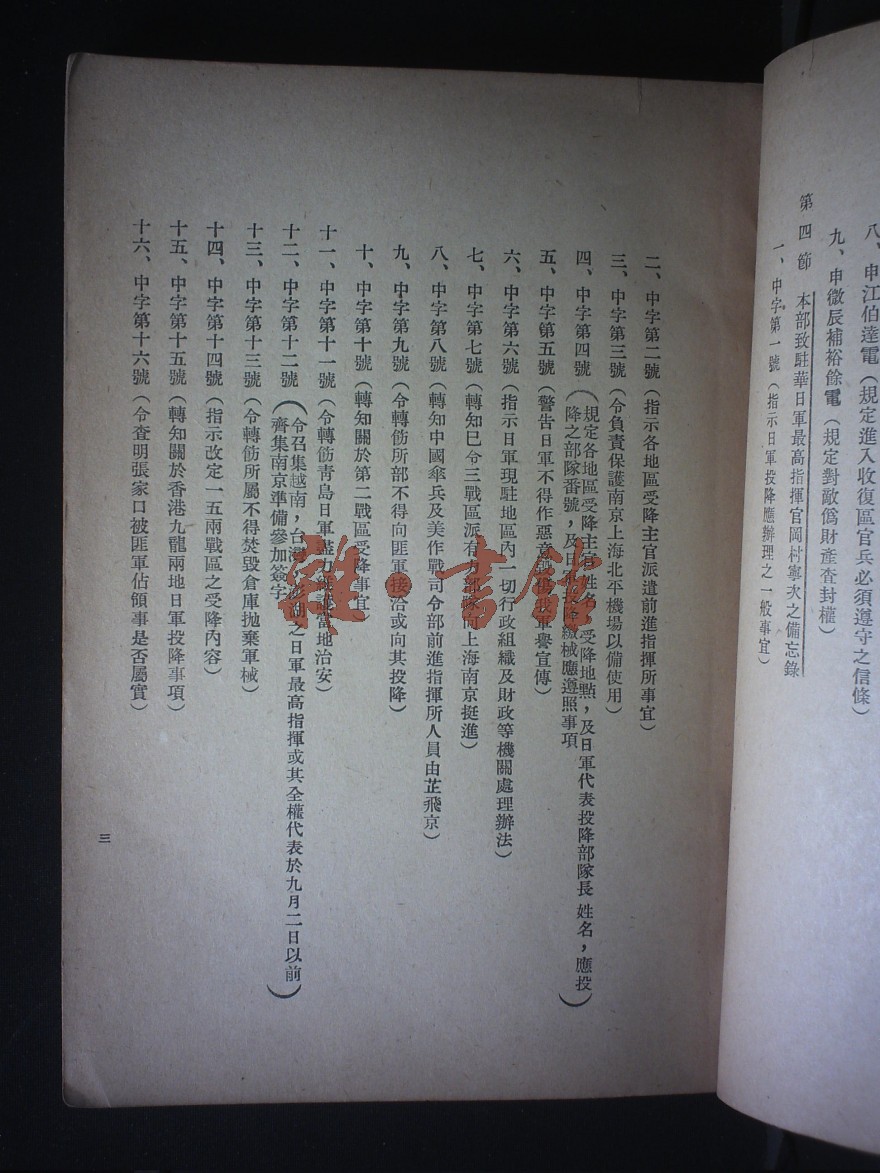 八、申江伯達電（規定進入收復區官兵必須遵守之信條）
九、申微辰補裕餘電（規定對敵僞財產查封權）
第四節 本部致駐華日軍最高指揮官岡村寧次之備忘錄
一、中字第一號（指示日軍投降應辦理之一般事宜）
二、中字第二號（指示各地區受降主官派遣前進指揮所事宜）
三、中字第三號（令負責保護南京上海北平機場以備使用）
四、中字第四號（規定各地區受降主官姓名，受降地點，及日軍代表投降部隊長姓名，應投
降之部隊番號，及日軍投降繳械應遵照事項）
五、中字第五號（警告日軍不得作惡意毀傷我軍譽宣傳）
六、中字第六號（指示日軍現駐地區內一切行政組織及財政等機關處理辦法）
七、中字第七號（轉知已令三戰區派有力部隊向上海南京挺進）
八、中字第八號（轉知中國傘兵及美作戰司令部前進指揮所人員由芷飛京）
九、中字第九號（令轉飭所部不得向匪軍接洽或向其投降）
十、中字第十號（轉知關於第二戰區受降事宜）
十一、中字第十一號（令轉飭青島日軍盡力維護當地治安）
十二、中字第十二號（令召集越南，台灣，澎湖之日軍最高指揮或其全權代表於九月二日以前
齊集南京準備參加簽字）
十三、中字第十三號（令轉飭所屬不得焚毀倉庫拋棄軍械）
十四、中字第十四號（指示改定一五兩戰區之受降內容）
十五、中字第十五號（轉知關於香港九龍兩地日軍投降事項）
十六、中字第十六號（令查明張家口被匪軍佔領事是否屬實）
三
雜·書館